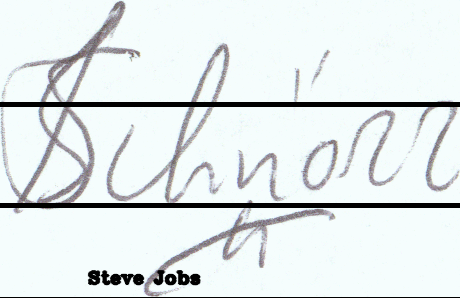 Schnörr
Steve Jobs